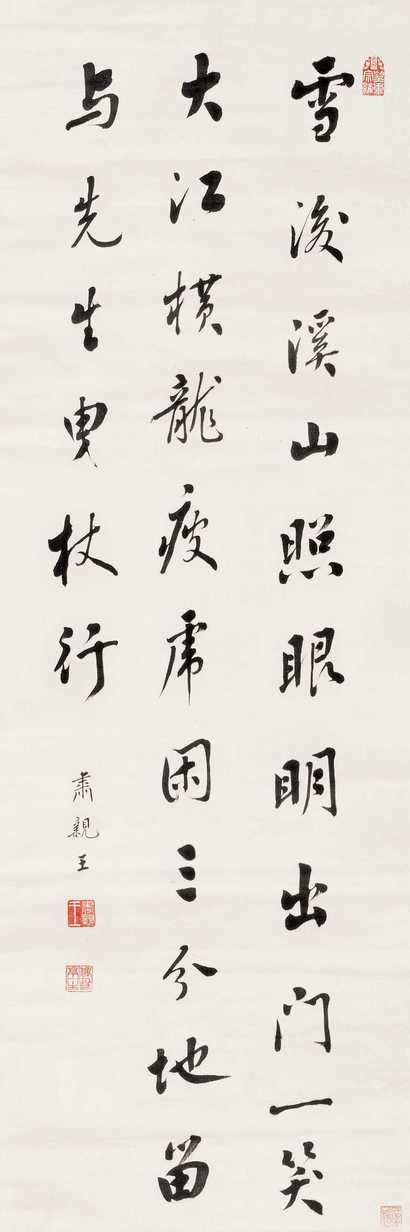 雪後溪山照眼明出门一笑
大江横龍疲虎困三分地留
与先生曳杖行
肅親王